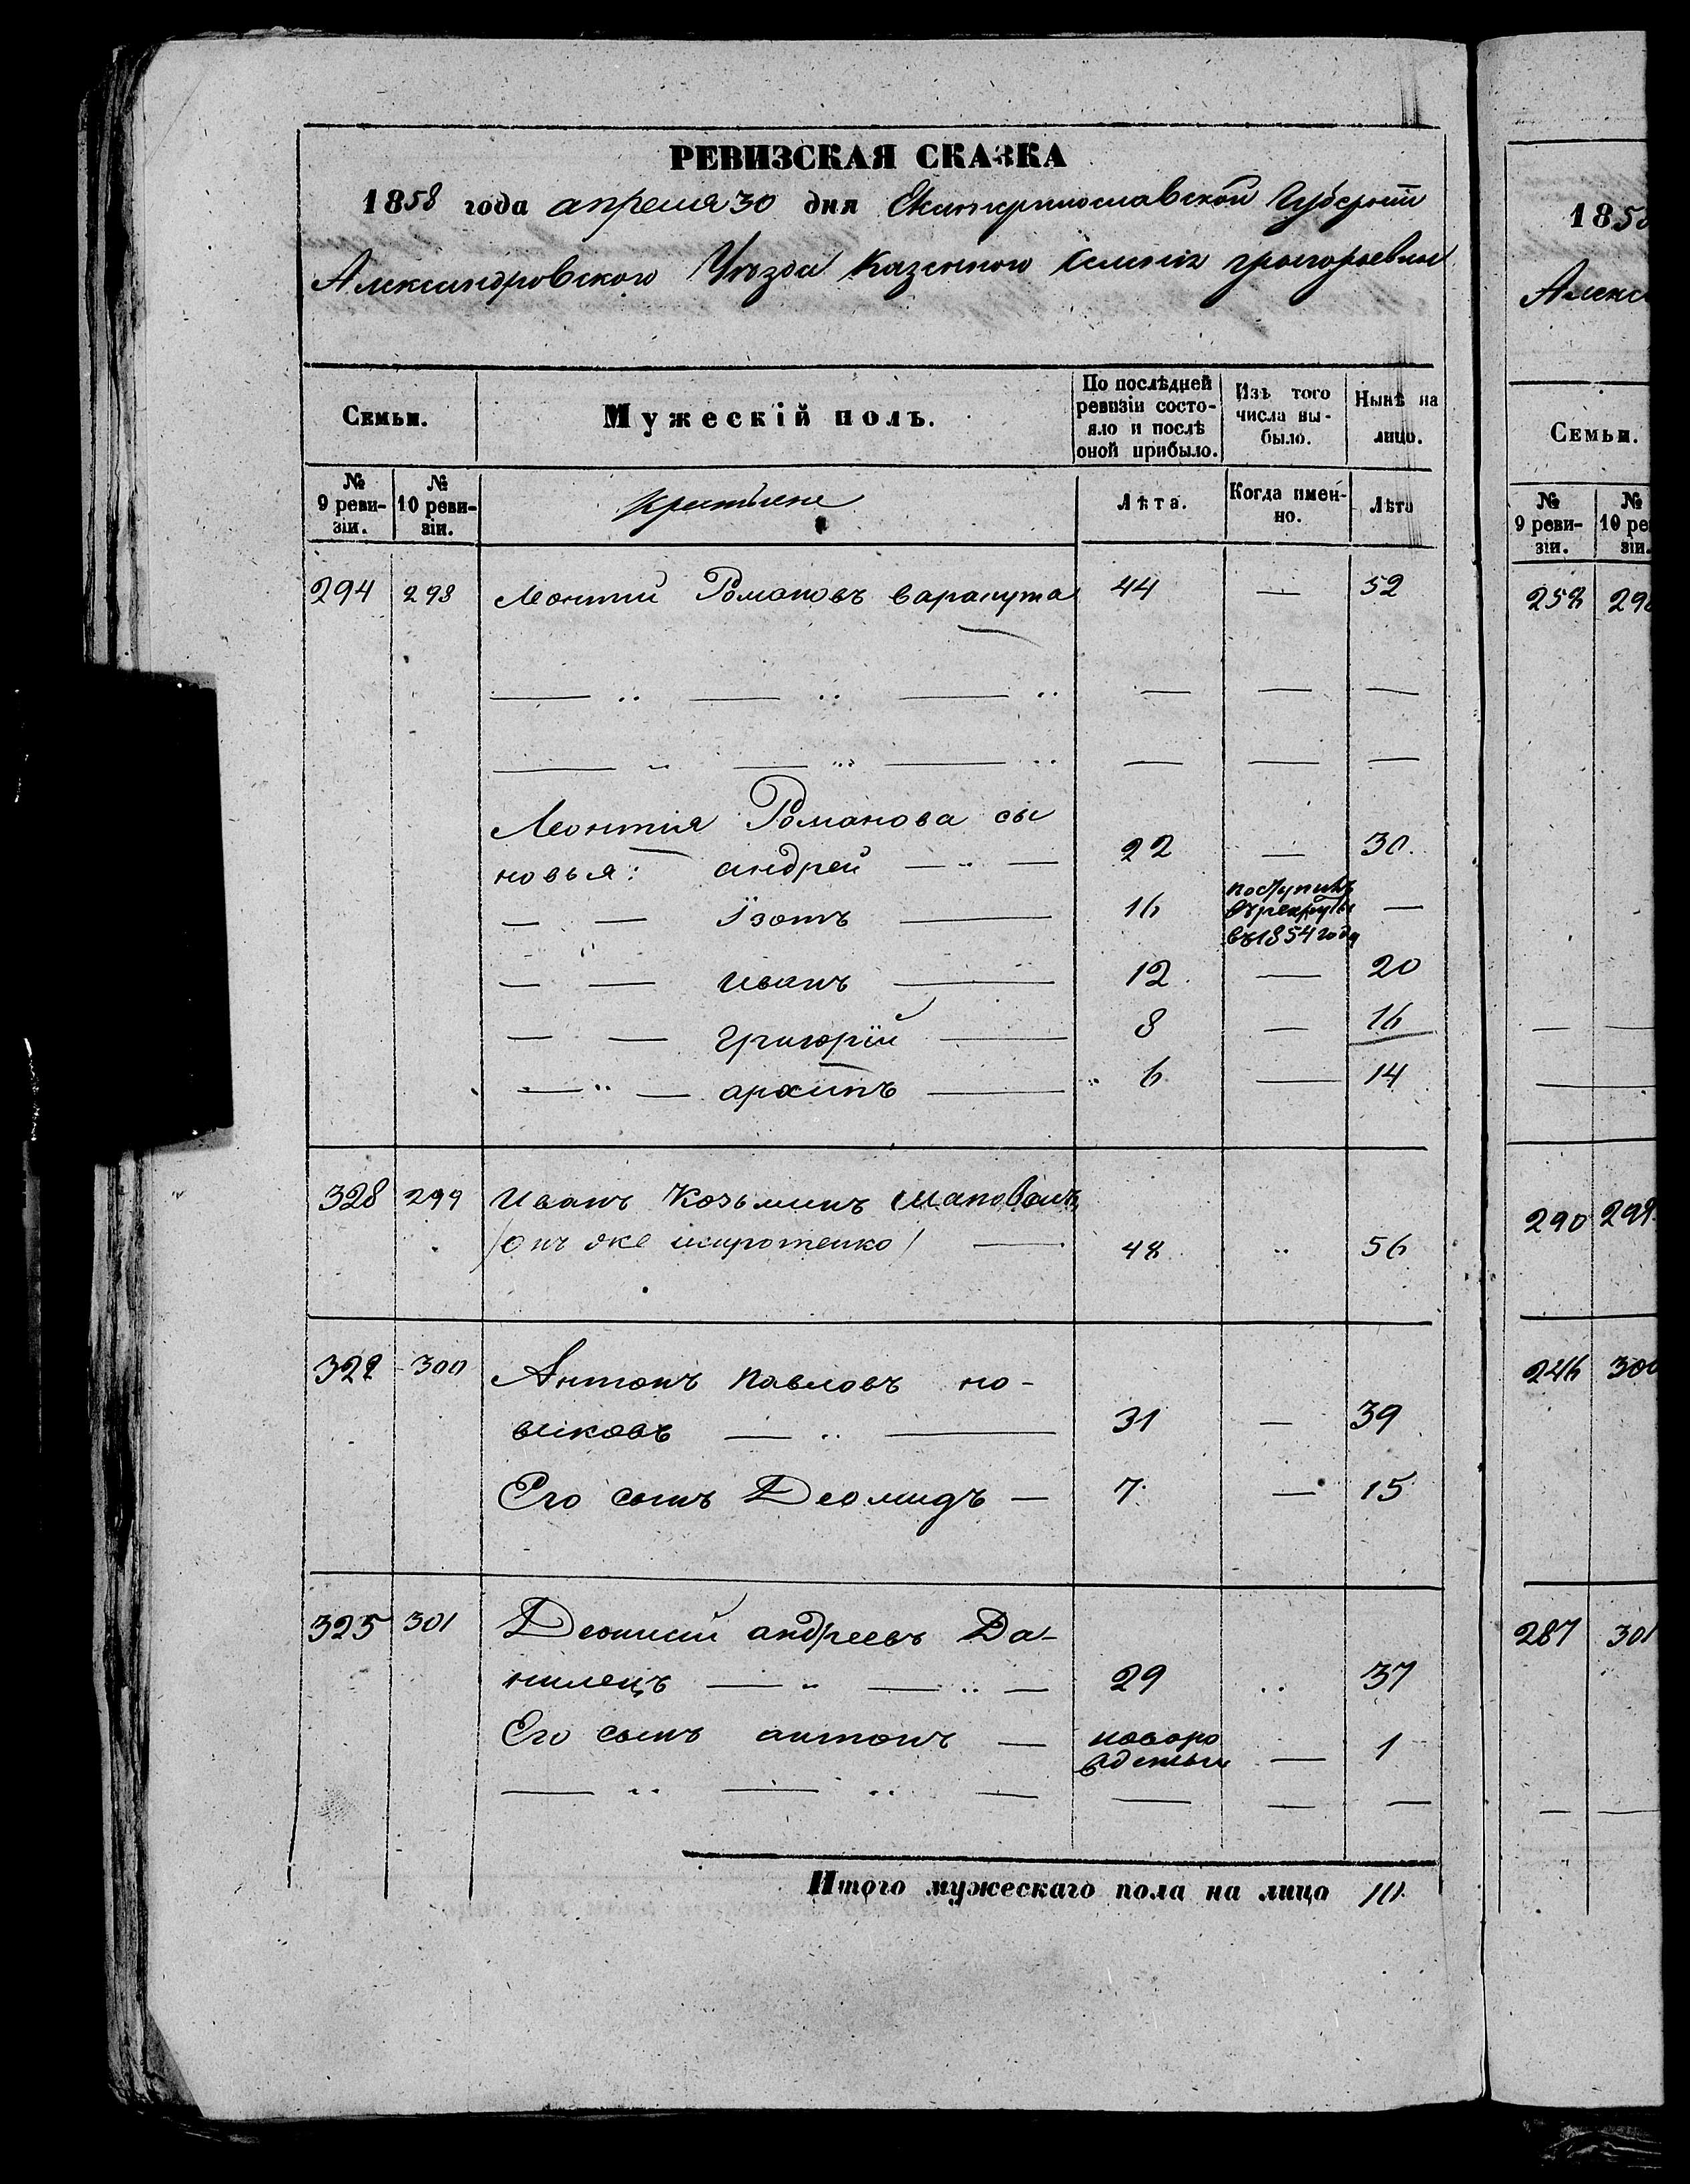 РЕВИЗСКАЯ СКАЗКА
1858 года апреля 30 дня Екатеринославской Губернїи
Александровского Уѣзда Казенного Селенїя григорьевки
Семьи.
Мужескій полъ.
По послѣдней ревизіи состояло и послѣ оной прибыло.
Изъ того числа выбыло.
Нынѣ на лицо.
№ 9 ревизіи.
№ 10 ревизіи.
крестьяне
Лѣта.
Когда именно.
Лѣта
294 298 Леонтий Романовъ варакута 44 — 52
Леонтия Романова сы
новья: андрей — 22 — 30.
— — Їзотъ — 16 поступилъ въ рекруты въ 1854 году —
— — иванъ — 12 — 20
— — григорїй — 8 — 16
— — архипъ — 6 — 14
328 299 Иванъ Козьминъ шаповалъ
/онъ же / — 48 .. 56
322 300 Антонъ павловъ но-
виковъ — 31 — 39
Его сынъ Деомидъ — 7 — 15
325 301 Деонисий андреевъ Да-
нилецъ — 29 .. 37
Его сынъ антонъ — новоро жденый — 1
Итого мужескаго пола на лицо 10
1858
Алекс
Семьи.
№ 9 ревизіи.
№ 10 реви
зіи.
258 298
290 299
246 300
287 301